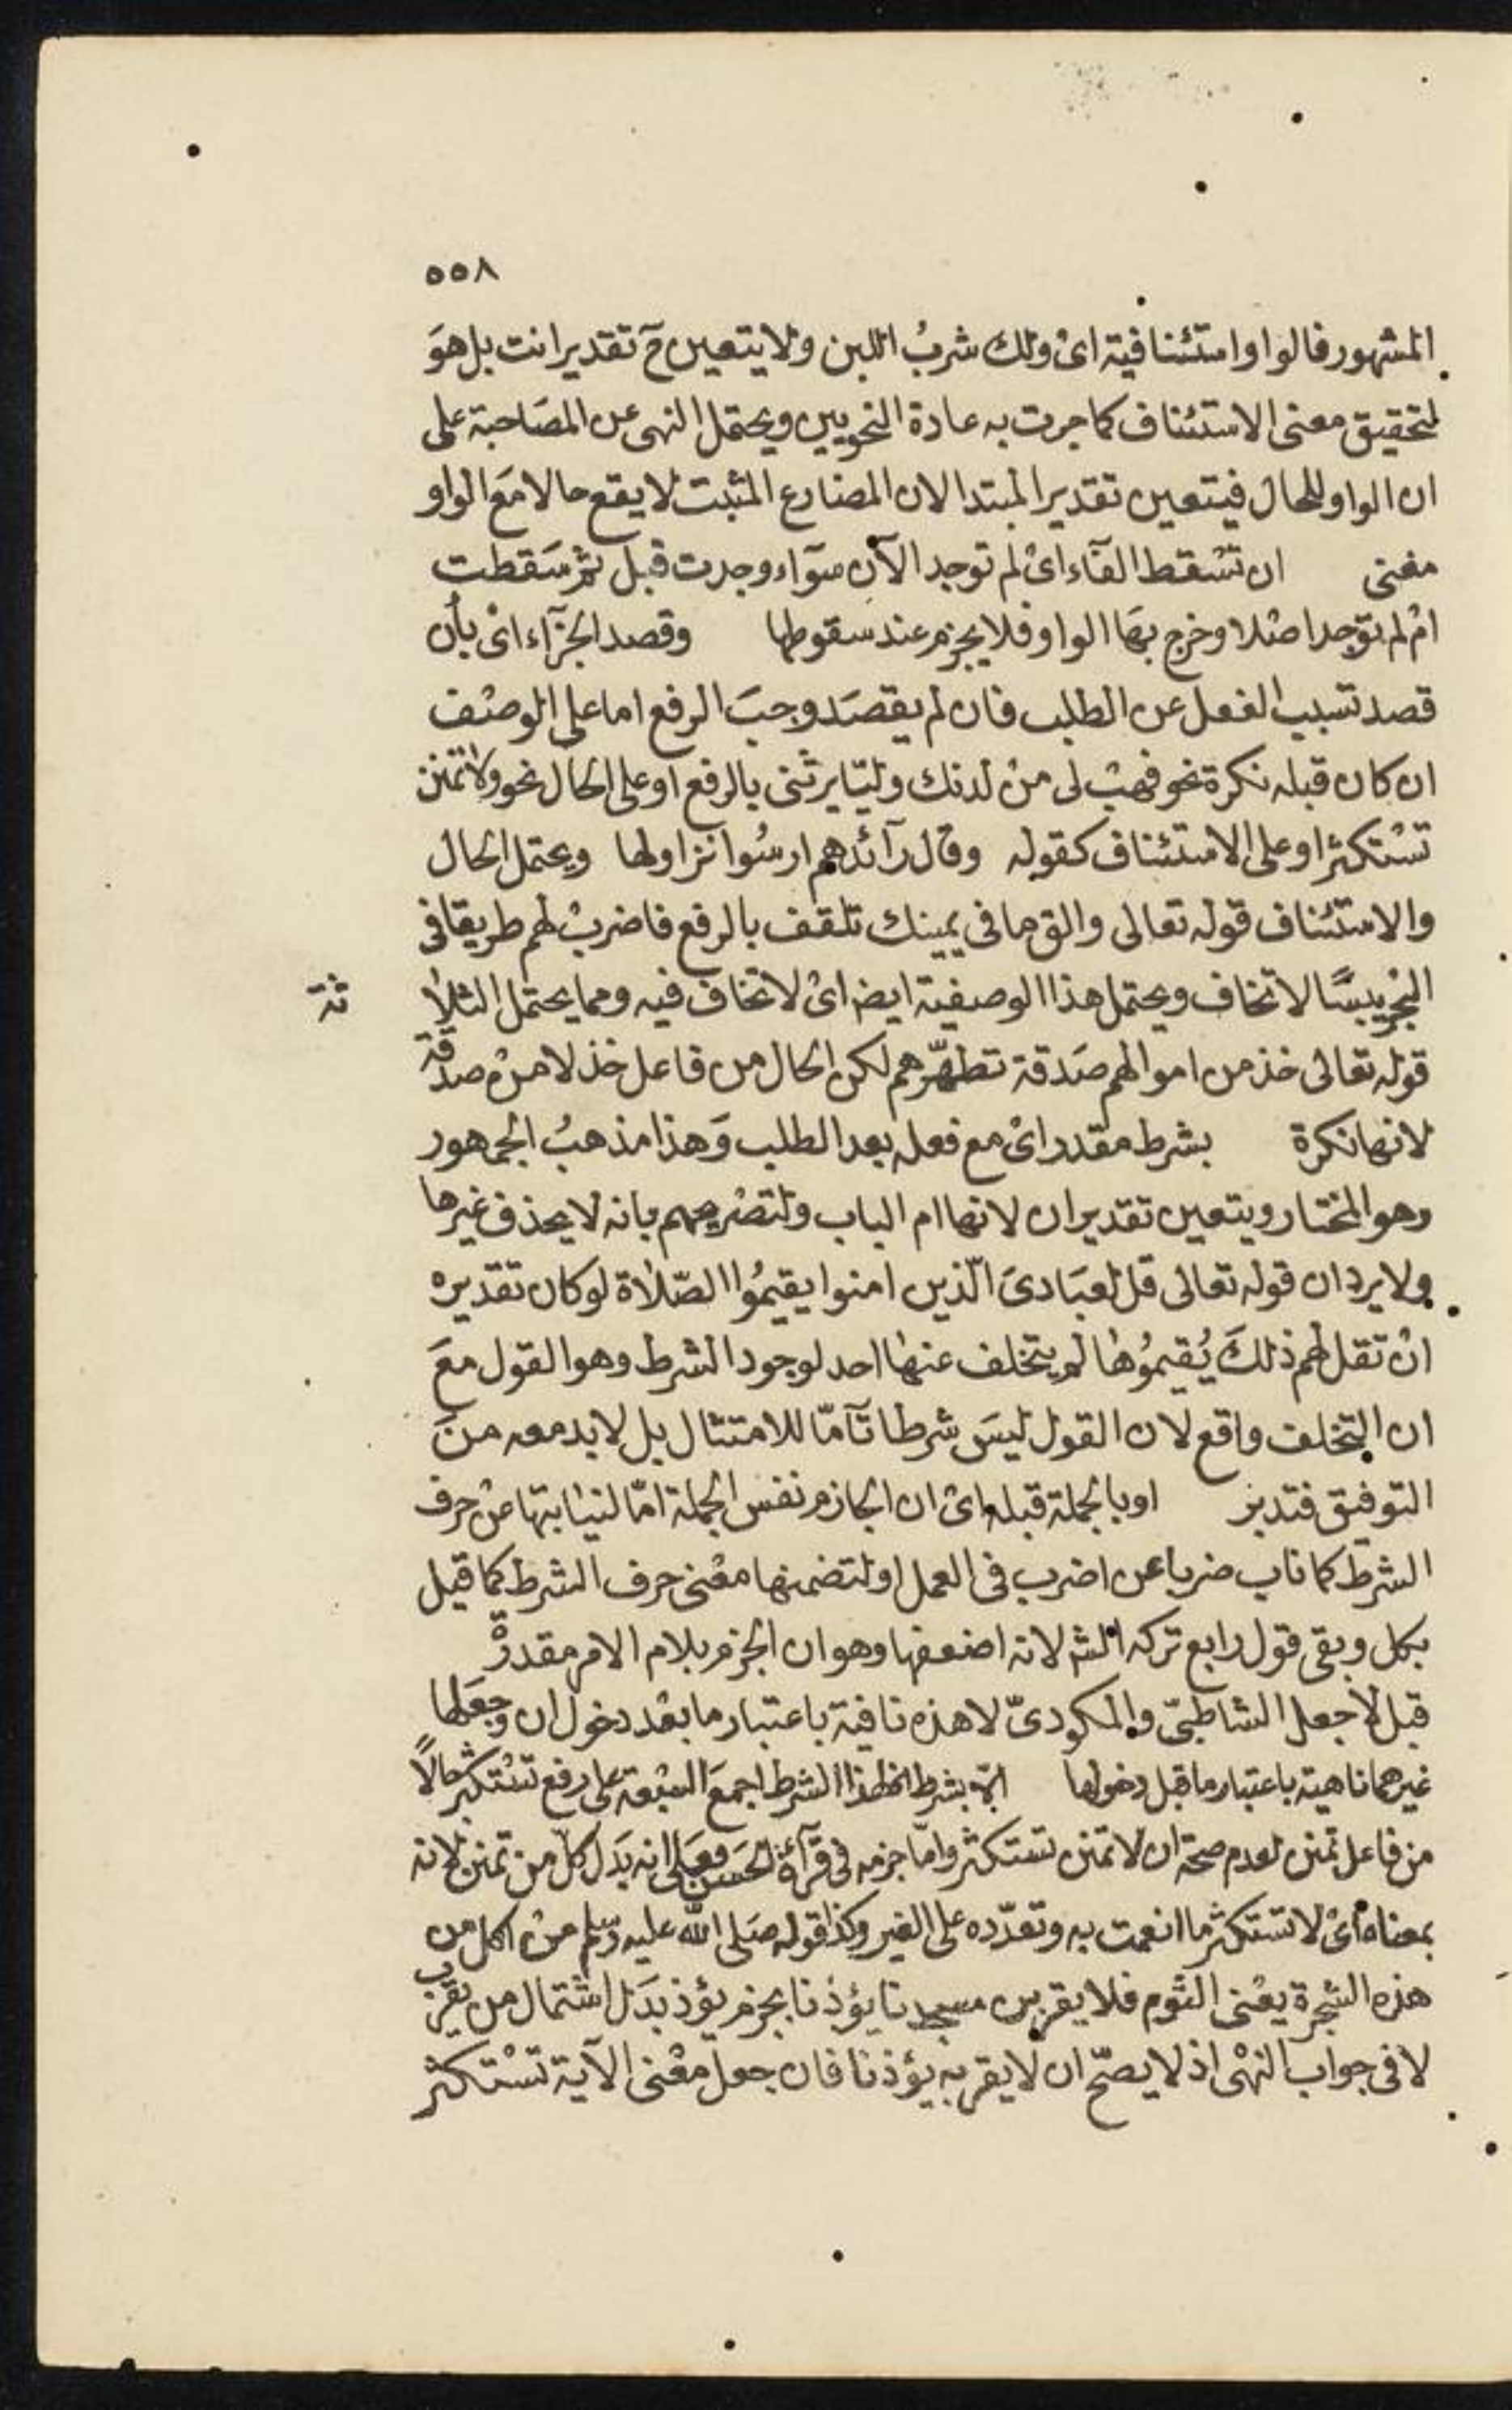 ٥٥٨
المشهور فالواو استئنافية اى ولك شربُ اللبن ولا يتعين حَ تقدير انت بل هوَ
لتحقيق معنى الاستئناف كما جرت به عادة النحويين ويحتمل النهى عن المصَاحبة على
ان الواو للحال فيتعين تقدير المبتدا لان المضارع المثبت لا يقع حالا مع الواو
مغنى ان تسْقط الفآء اىْ لم توجد الآن سوآء وجدت قبل ثم سَقطت
امْ لم توجد اصْلا وخرج بهَا الواو فلا يجزم عند سقوطها وقصد الجزآء اىْ بأن
قصد تسبب الفعل عن الطلب فان لم يقصَد وجبَ الرفع اما على الوصْف
ان كان قبله نكرة نحو فهبْ لى منْ لدنك وليّا يرثنى بالرفع او على الحال نحو ولا تمنن
تسْتكثر او على الاستئناف كقوله وقال رآئدهم ارسُوا نزاولها ويحتمل الحال
والاستئناف قوله تعالى والق ما فى يمينك تلقف بالرفع فاضربْ لهم طريقا فى
البحْر يبسًا لا تخاف ويحتمل هذا الوصفية ايضا اىْ لا تخاف فيه ومما يحتمل الثلا
ثة
قوله تعالى خذ من اموالهم صَدقة تطهّرهم لكن الحال من فاعل خذ لا منْ صدقة
لانها نكرة بشرط مقدر اىْ مع فعله بعد الطلب وَهذا مذهبُ الجمهور
وهو المختار ويتعين تقدير ان لانها ام الباب ولتصْريحهم بانه لا يحذف غيرها
ولا يرد ان قوله تعالى قل لعبَادىَ الّذين امنوا يقيمُوا الصّلاة لو كان تقديره
انْ تقل لهم ذلكَ يُقيمُوها لم يتخلف عنها احد لوجود الشرط وهو القول معَ
ان التخلف واقع لان القول ليسَ شرطا تآمّا للامتثال بل لا بد معه منَ
التوفيق فتدبر او بالجملة قبله اىْ ان الجازم نفس الجملة امّا لنيابتها عنْ حرف
الشرط كما ناب ضربا عن اضرب فى العمل او لتضمنها معْنى حرف الشرط كما قيل
بكل وبقى قول رابع تركه الش لانه اضعفها وهو ان الجزم بلام الامر مقدرةْ
قبل لا جعل الشاطبىّ والمكودىّ لا هذه نافية باعتبار ما بعْد دخول ان وجعَلها
غيرهما ناهية باعتبار ما قبل دخولها الخ بشرط الخ لهذا الشرط اجمعَ السّبعة على رفع تسْتكثر حالًا
من فاعل تمنن لعدم صحة ان لا تمنن تستكثر وامّا جزمه فى قرآءة الحَسن فعَلى انه بدَل كل من تمنن لانه
بمعناه اىْ لا تستكثر ما انعمت به وتعدّده على الغير وكذا قوله صَلى الله عليه وسلم منْ اكل من
هذه الشجرة يعْنى الثوم فلا يقربن مسجدنا يؤذنا بجزم يؤذ بدَل اشتمال من يقرب
لا فى جواب النهْى اذ لا يصحّ ان لا يقربه يؤذنا فان جعل معْنى الآية تسْتكثر